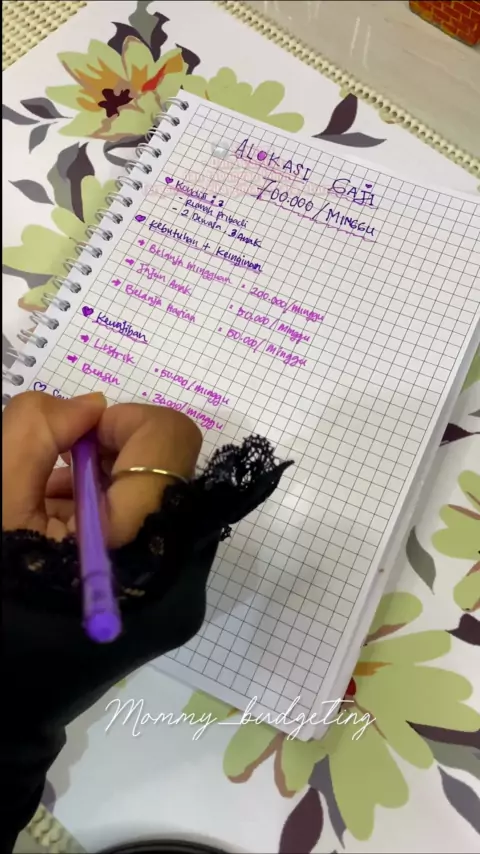 ALOKASI GAJI
700.000/MINGGU
Kondisi :
- Rumah Pribadi
- 2 Dewasa 3 Anak
Kebutuhan + Keinginan
→ Belanja mingguan • 200.000/minggu
→ Jajan Anak • 50.000/minggu
→ Belanja Harian • 50.000/minggu
Kewajiban
→ Listrik • 50.000/minggu
→ Bensin • 30.000/minggu
Mommy_budgeting